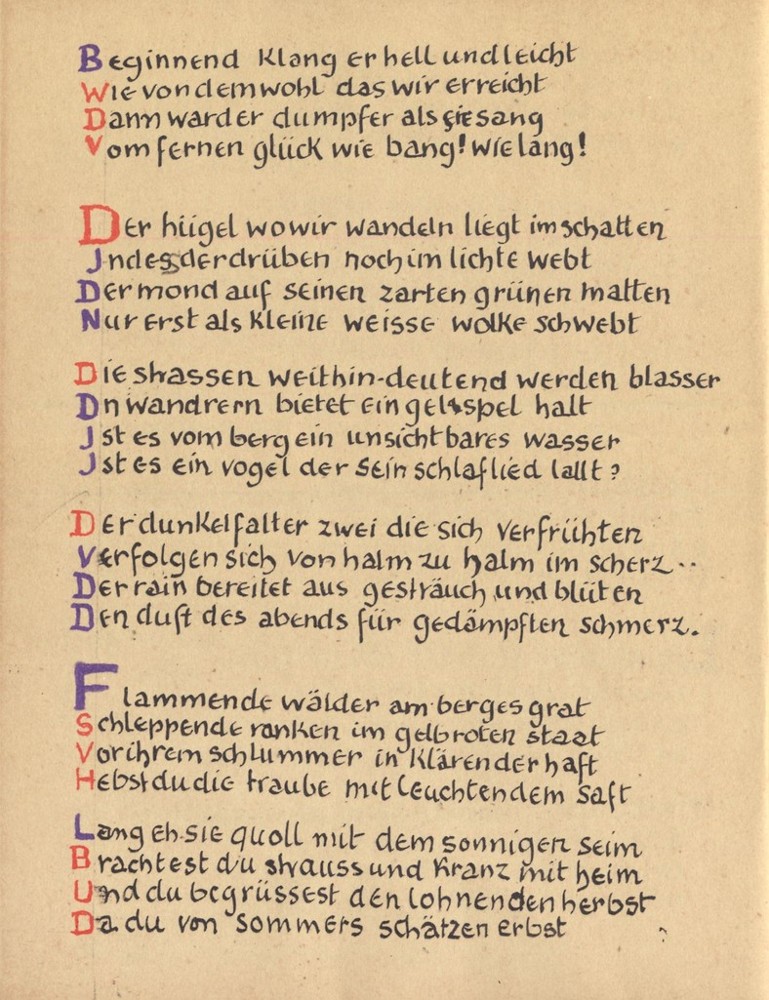 Beginnend klang er hell und leicht
Wie von dem wohl das wir erreicht
Dann ward er dumpfer als sie sang
Vom fernen glück wie bang! wie lang!
Der hügel wo wir wandeln liegt im schatten
Indes der drüben noch im lichte webt
Der mond auf seinen zarten grünen matten
Nur erst als kleine weisse wolke schwebt
Die strassen weithin-deutend werden blasser
Dn wandrern bietet ein gelispel halt
Ist es vom berg ein unsichtbares wasser
Ist es ein vogel der sein schlaflied lallt?
Der dunkelfalter zwei die sich verfrühten
Verfolgen sich von halm zu halm im scherz..
Der rain bereitet aus gesträuch und blüten
Den duft des abends für gedämpften schmerz.
Flammende wälder am berges grat
Schleppende ranken im gelbroten staat
Vor ihrem schlummer in klärender haft
Hebst du die traube mit leuchtendem saft
Lang eh sie quoll mit dem sonnigen seim
Brachtest du strauss und kranz mit heim
Und du begrüssest den lohnenden herbst
Da du von sommers schätzen erbst